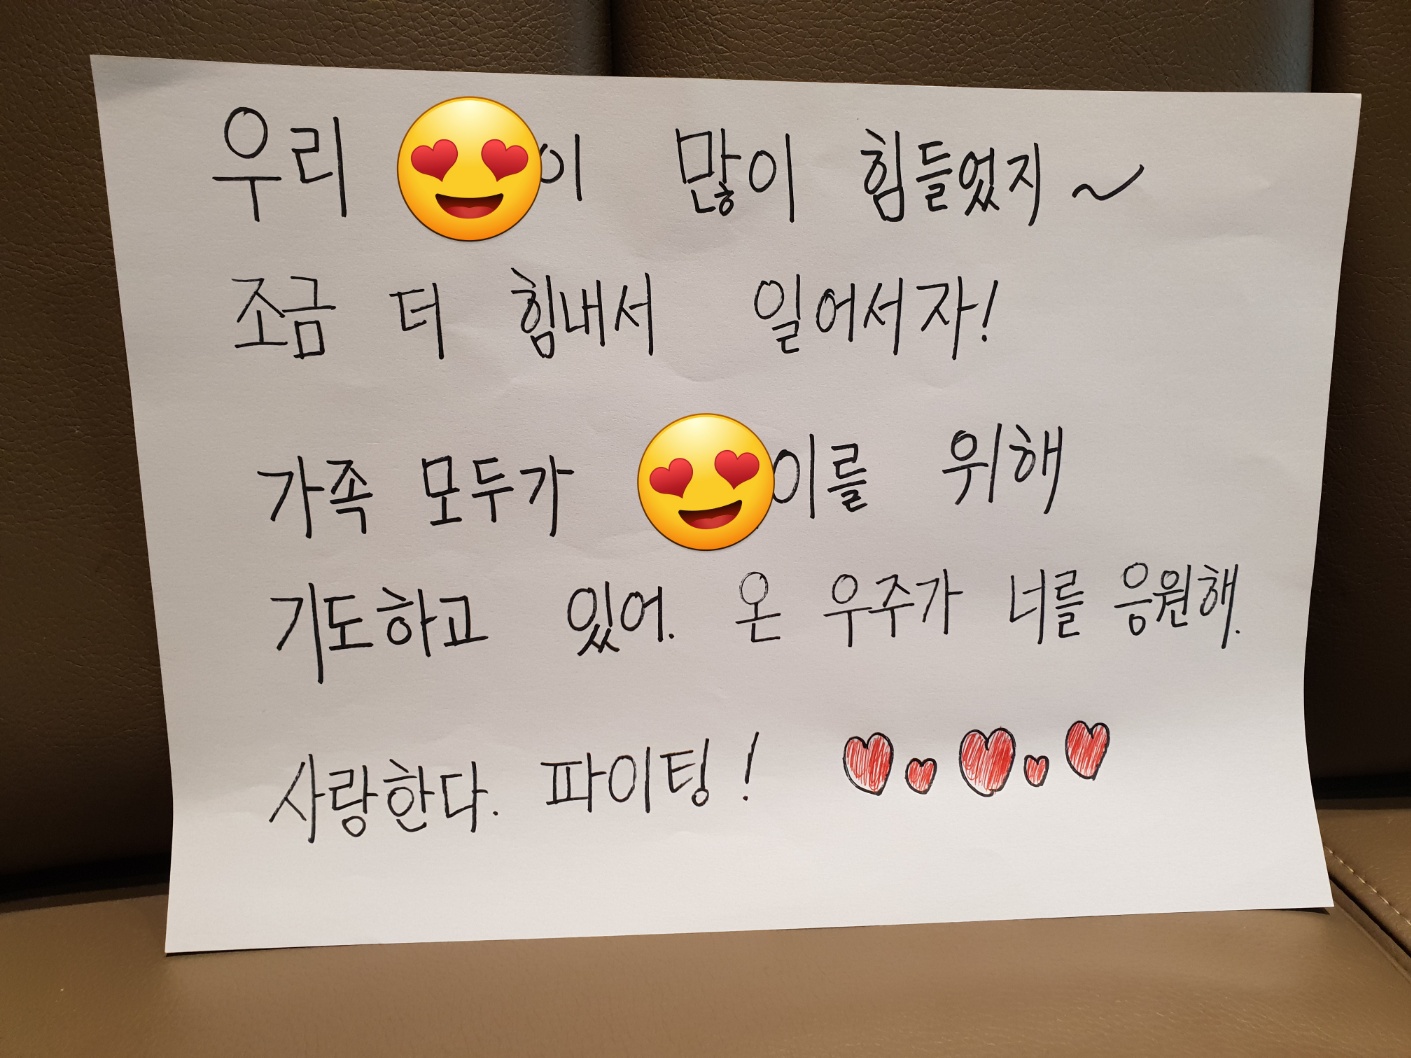 우리 이 많이 힘들었지~
조금 더 힘내서 일어서자!
가족 모두가 이를 위해
기도하고 있어. 온 우주가 너를 응원해.
사랑한다. 파이팅!